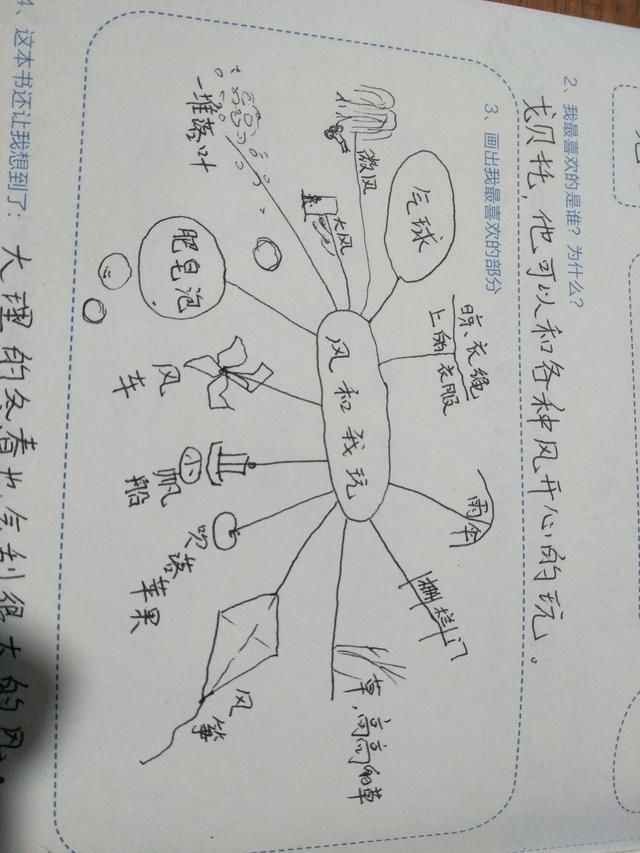 2、我最喜欢的是谁？为什么？
他可以和各种风开心的玩。
3、画出我最喜欢的部分
风和我玩
气球
晾衣绳
上的衣服
雨伞
栅栏门
草，高高的草
风筝
吹落苹果
帆船
小
风车
肥皂泡
一堆落叶
大风
微风
4、这本书还让我想到了：
大理的冬春也会刮很大的风